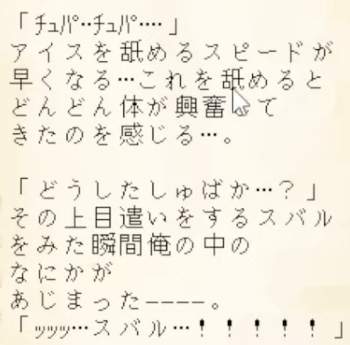 「ﾁｭﾊﾟ‥ﾁｭﾊﾟ‥‥」
アイスを舐めるスピードが
早くなる…これを舐めると
どんどん体が興奮して
きたのを感じる…。
「どうしたしゅばか…？」
その上目遣いをするスバル
をみた瞬間俺の中の
なにかが
あじまった----。
「ｯｯｯｯ…スバル…！！！！！」